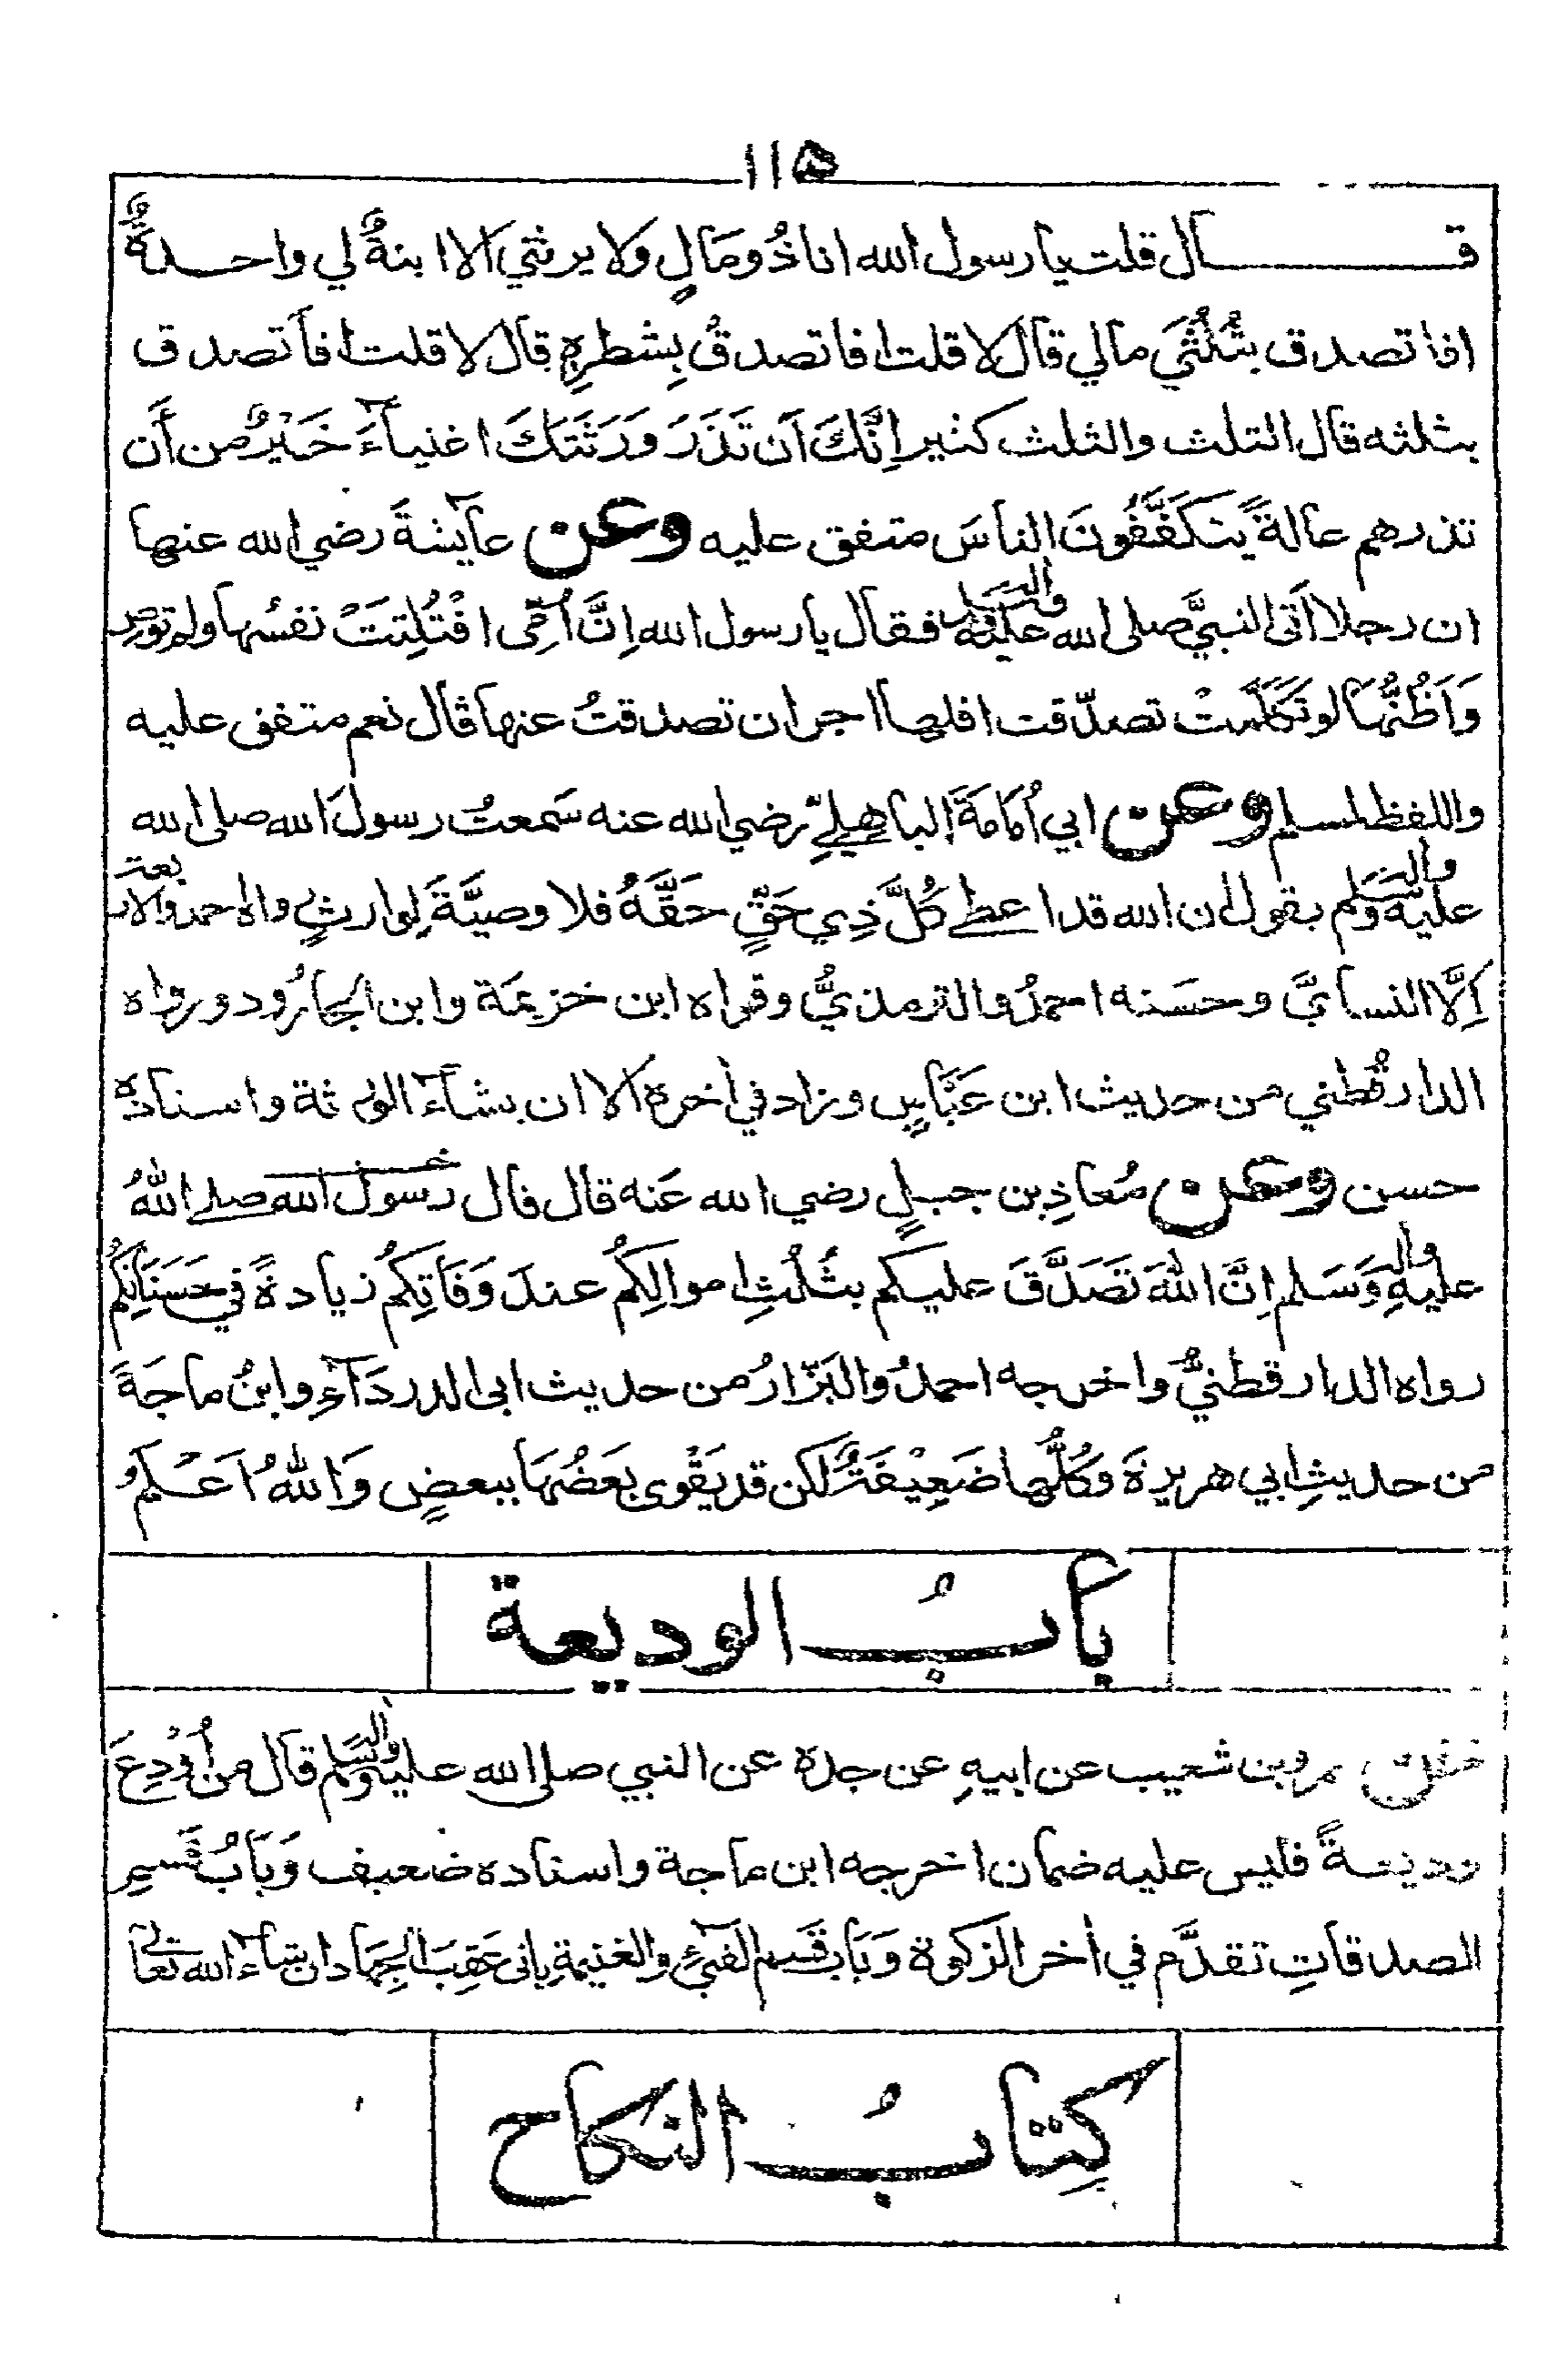 ١١٥
قـــــال قلت يا رسول الله انا ذُو مَالٍ ولا يرثني الا ابنةٌ لي واحـــدةٌ
افاتصدق بثُلُثَي مالي قال لا قلت افاتصدقُ بِشطرِهٖ قال لا قلت افأتصدق
بثلثه قال الثلث والثلث كثير اِنَّكَ اَن تَذَرَ وَرَثَتَكَ اغنيآءَ خَيْرٌ من أَن
تذرهم عالةً يتكفَّفُونَ الناسَ متفق عليه وعن عآيشةَ رضي الله عنها
ان رجلا اَتى النبيَّ صلى الله عليه واله وسلم فقال يا رسول الله اِنَّ اُمِّى افْتُلِتَتْ نفسُها ولم توصِ
وَاَظُنُّهَا لو تَكَلَّمَتْ تصدّقت افلها اجر ان تصدقتُ عنها قال نعم متفق عليه
واللفظ لمسلم وعن ابي اُمَامَةَ الباهِلِيِّ رضي الله عنه سَمعتُ رسولَ الله صلى الله
عليه واله وسلم يقول ان الله قد اعطى كُلَّ ذِي حَقٍّ حَقَّهُ فلا وصيَّةَ لِوارثٍ رواه احمد والاربعة
اِلَّا النسايَّ وحسَنه احمدُ والترمذيُّ وقواه ابن خزيمَة وابن الجارُود ورواه
الدارقُطني من حديث ابن عَبَّاسٍ وزاد في أخره الا ان يشآءَ الورثة واسنادُه
حسن وعن مُعاذِ بن جبلٍ رضي الله عَنه قال قال رَسولُ الله صلى اللهُ
عليهِ واله وَسَلم اِنَّ اللهَ تَصَدَّقَ عليكم بثُلُثِ اموالِكُم عندَ وَفَاتِكُم زيادةً في حَسَنَاتِكُم
رواه الدارقطنيُّ واخرجه احمدُ والبَزّارُ من حديث ابى الدردَآءِ وابنُ ماجَةَ
من حديثِ ابي هريرةَ وَكُلُّها ضَعِيْفَةٌ لكن قد يَقْوى بعَضُهَا ببعضٍ وَاللهُ اَعْلَمُ
بابُ الوديعة
عن عمرو بن شعيب عن ابيهِ عن جده عن النبي صلى الله عليه واله وسلم قال من اُوْدِعَ
وديعةً فليس عليه ضمان اخرجه ابن ماجة واسناده ضعيف وَبَابُ قَسمِ
الصدقاتِ تقدَّم في أخر الزكوة وَبَاب قَسم الفيءِ والغنيمةِ ياتى عَقِبَ الجِهَاد ان شآءَ الله تعالى
كِتابُ النكاح